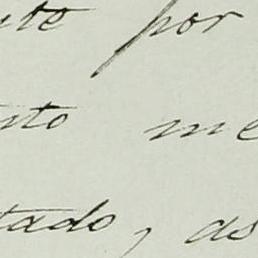 nte por
nto me
tado, as